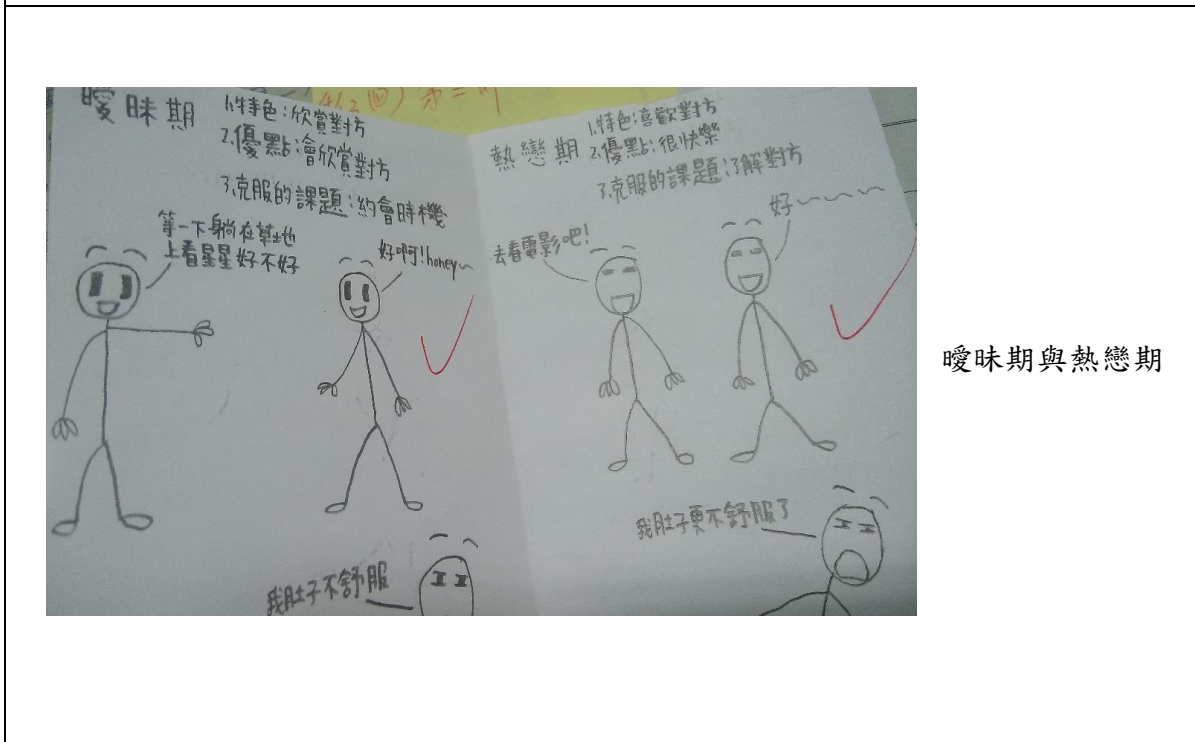 曖昧期
1.特色:欣賞對方
2.優點:會欣賞對方
3.克服的課題:約會時機
等一下躺在草地
上看星星好不好
好啊!honey~
我肚子不舒服
熱戀期
1.特色:喜歡對方
2.優點:很快樂
3.克服的課題:了解對方
去看電影吧!
好~~~~
我肚子更不舒服了
曖昧期與熱戀期